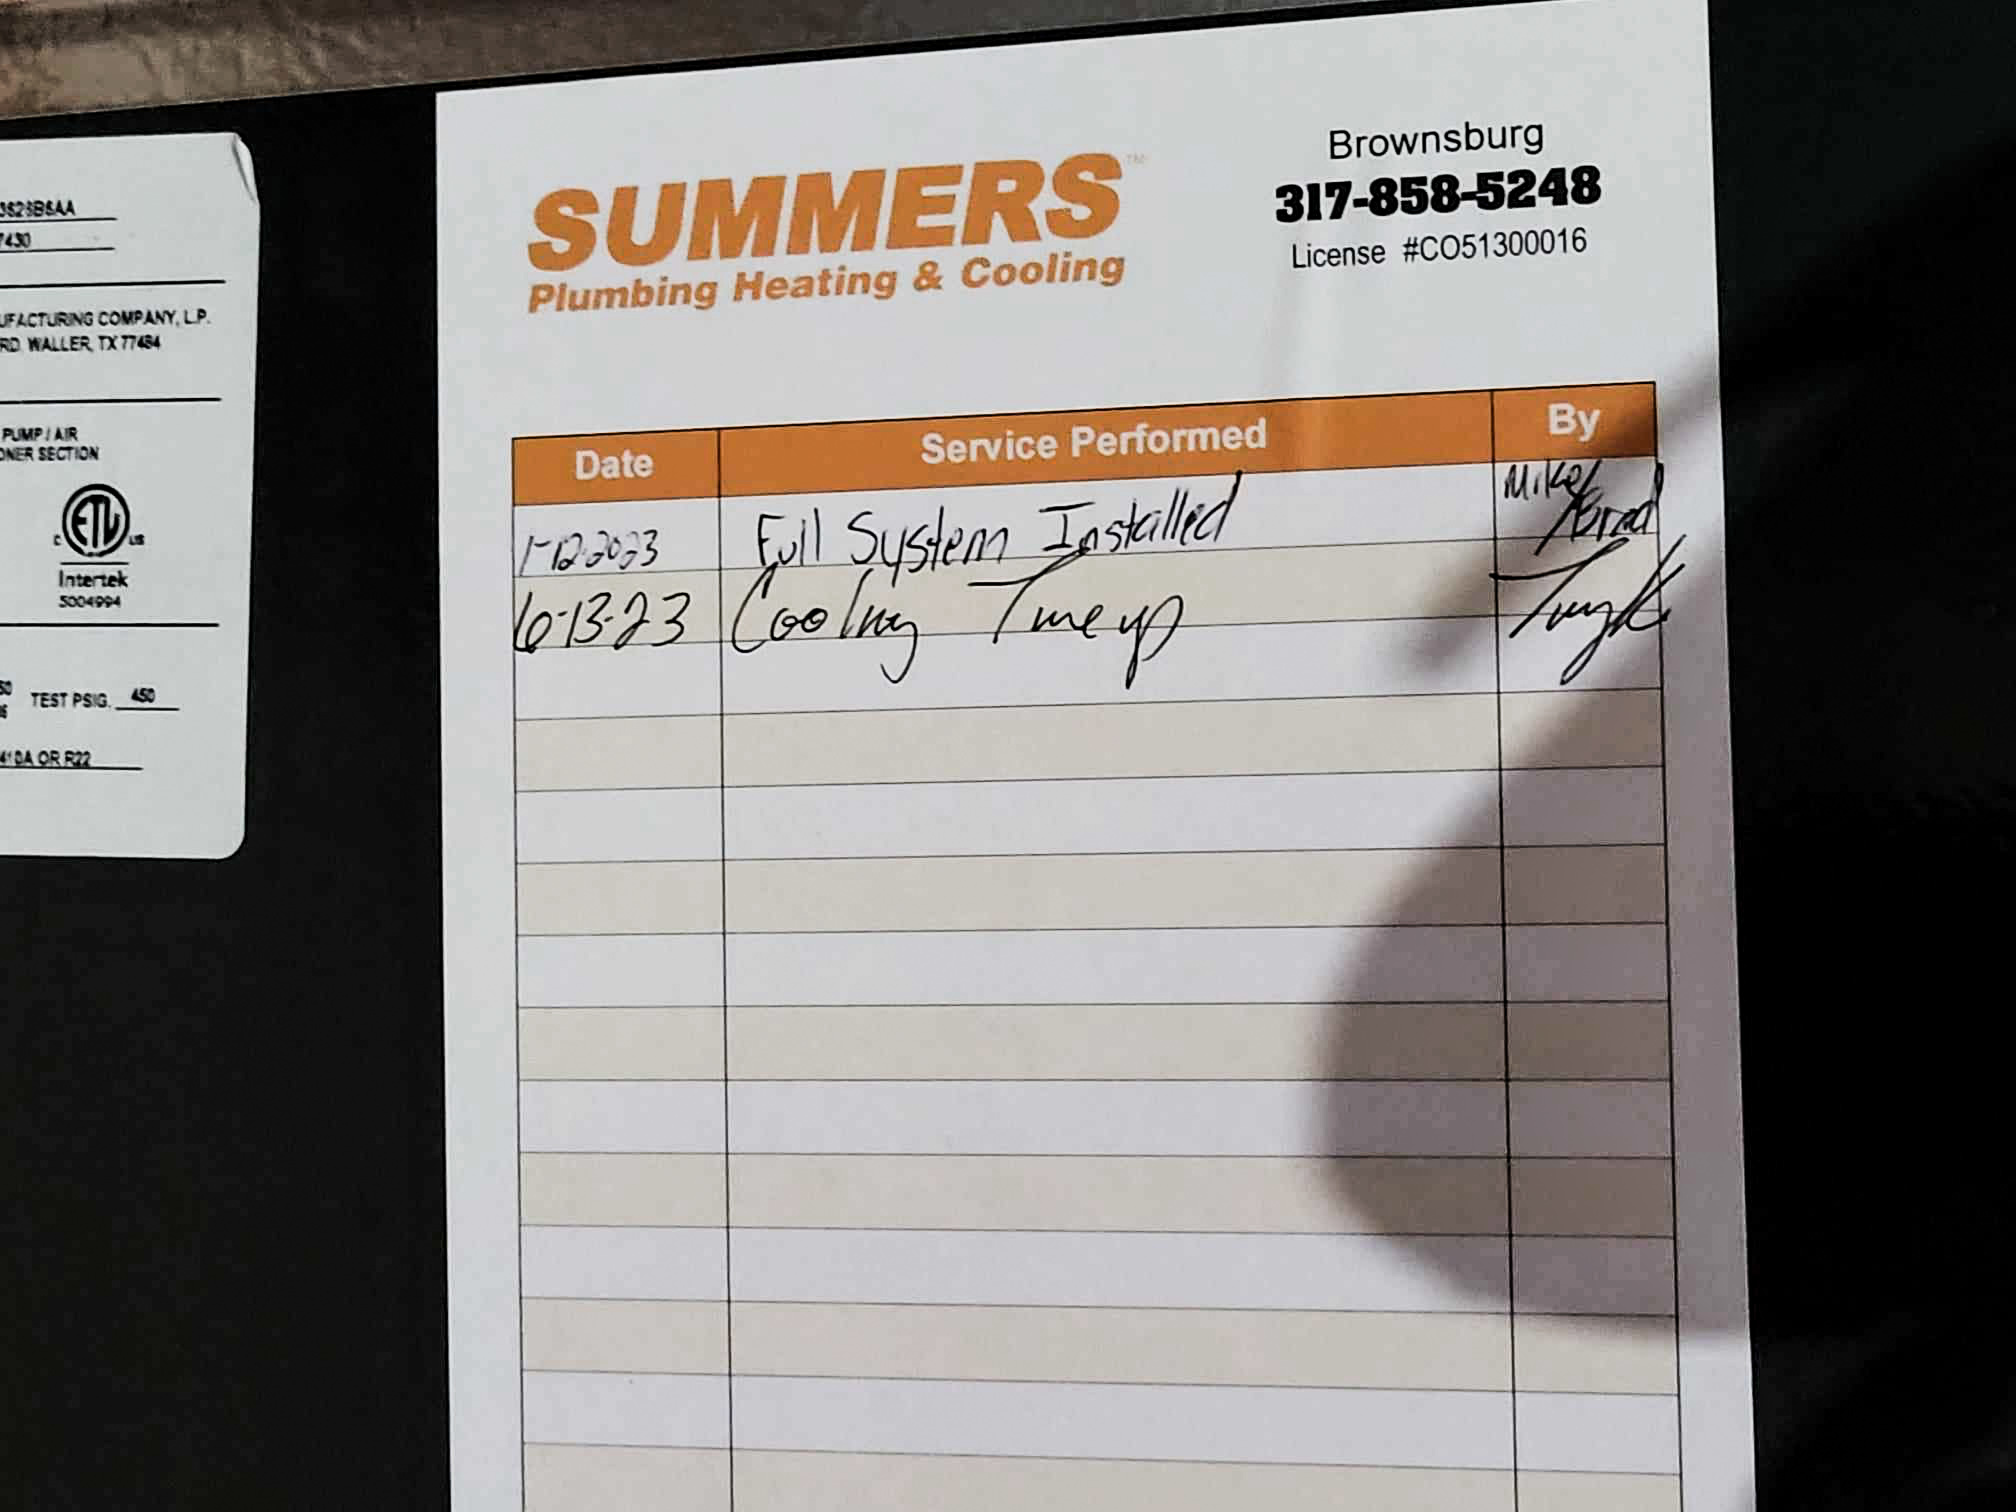 3626B6AA
7430
UFACTURING COMPANY, L.P.
RD. WALLER, TX 77484
PUMP / AIR
ONER SECTION
C ETL US
Intertek
5004994
TEST PSIG. 450
410A OR R22
SUMMERS™
Plumbing Heating & Cooling
Brownsburg
317-858-5248
License #CO51300016
Date Service Performed By
1-12-2023 Full System Installed Mike/Brad
6-13-23 Cooling Tuneup